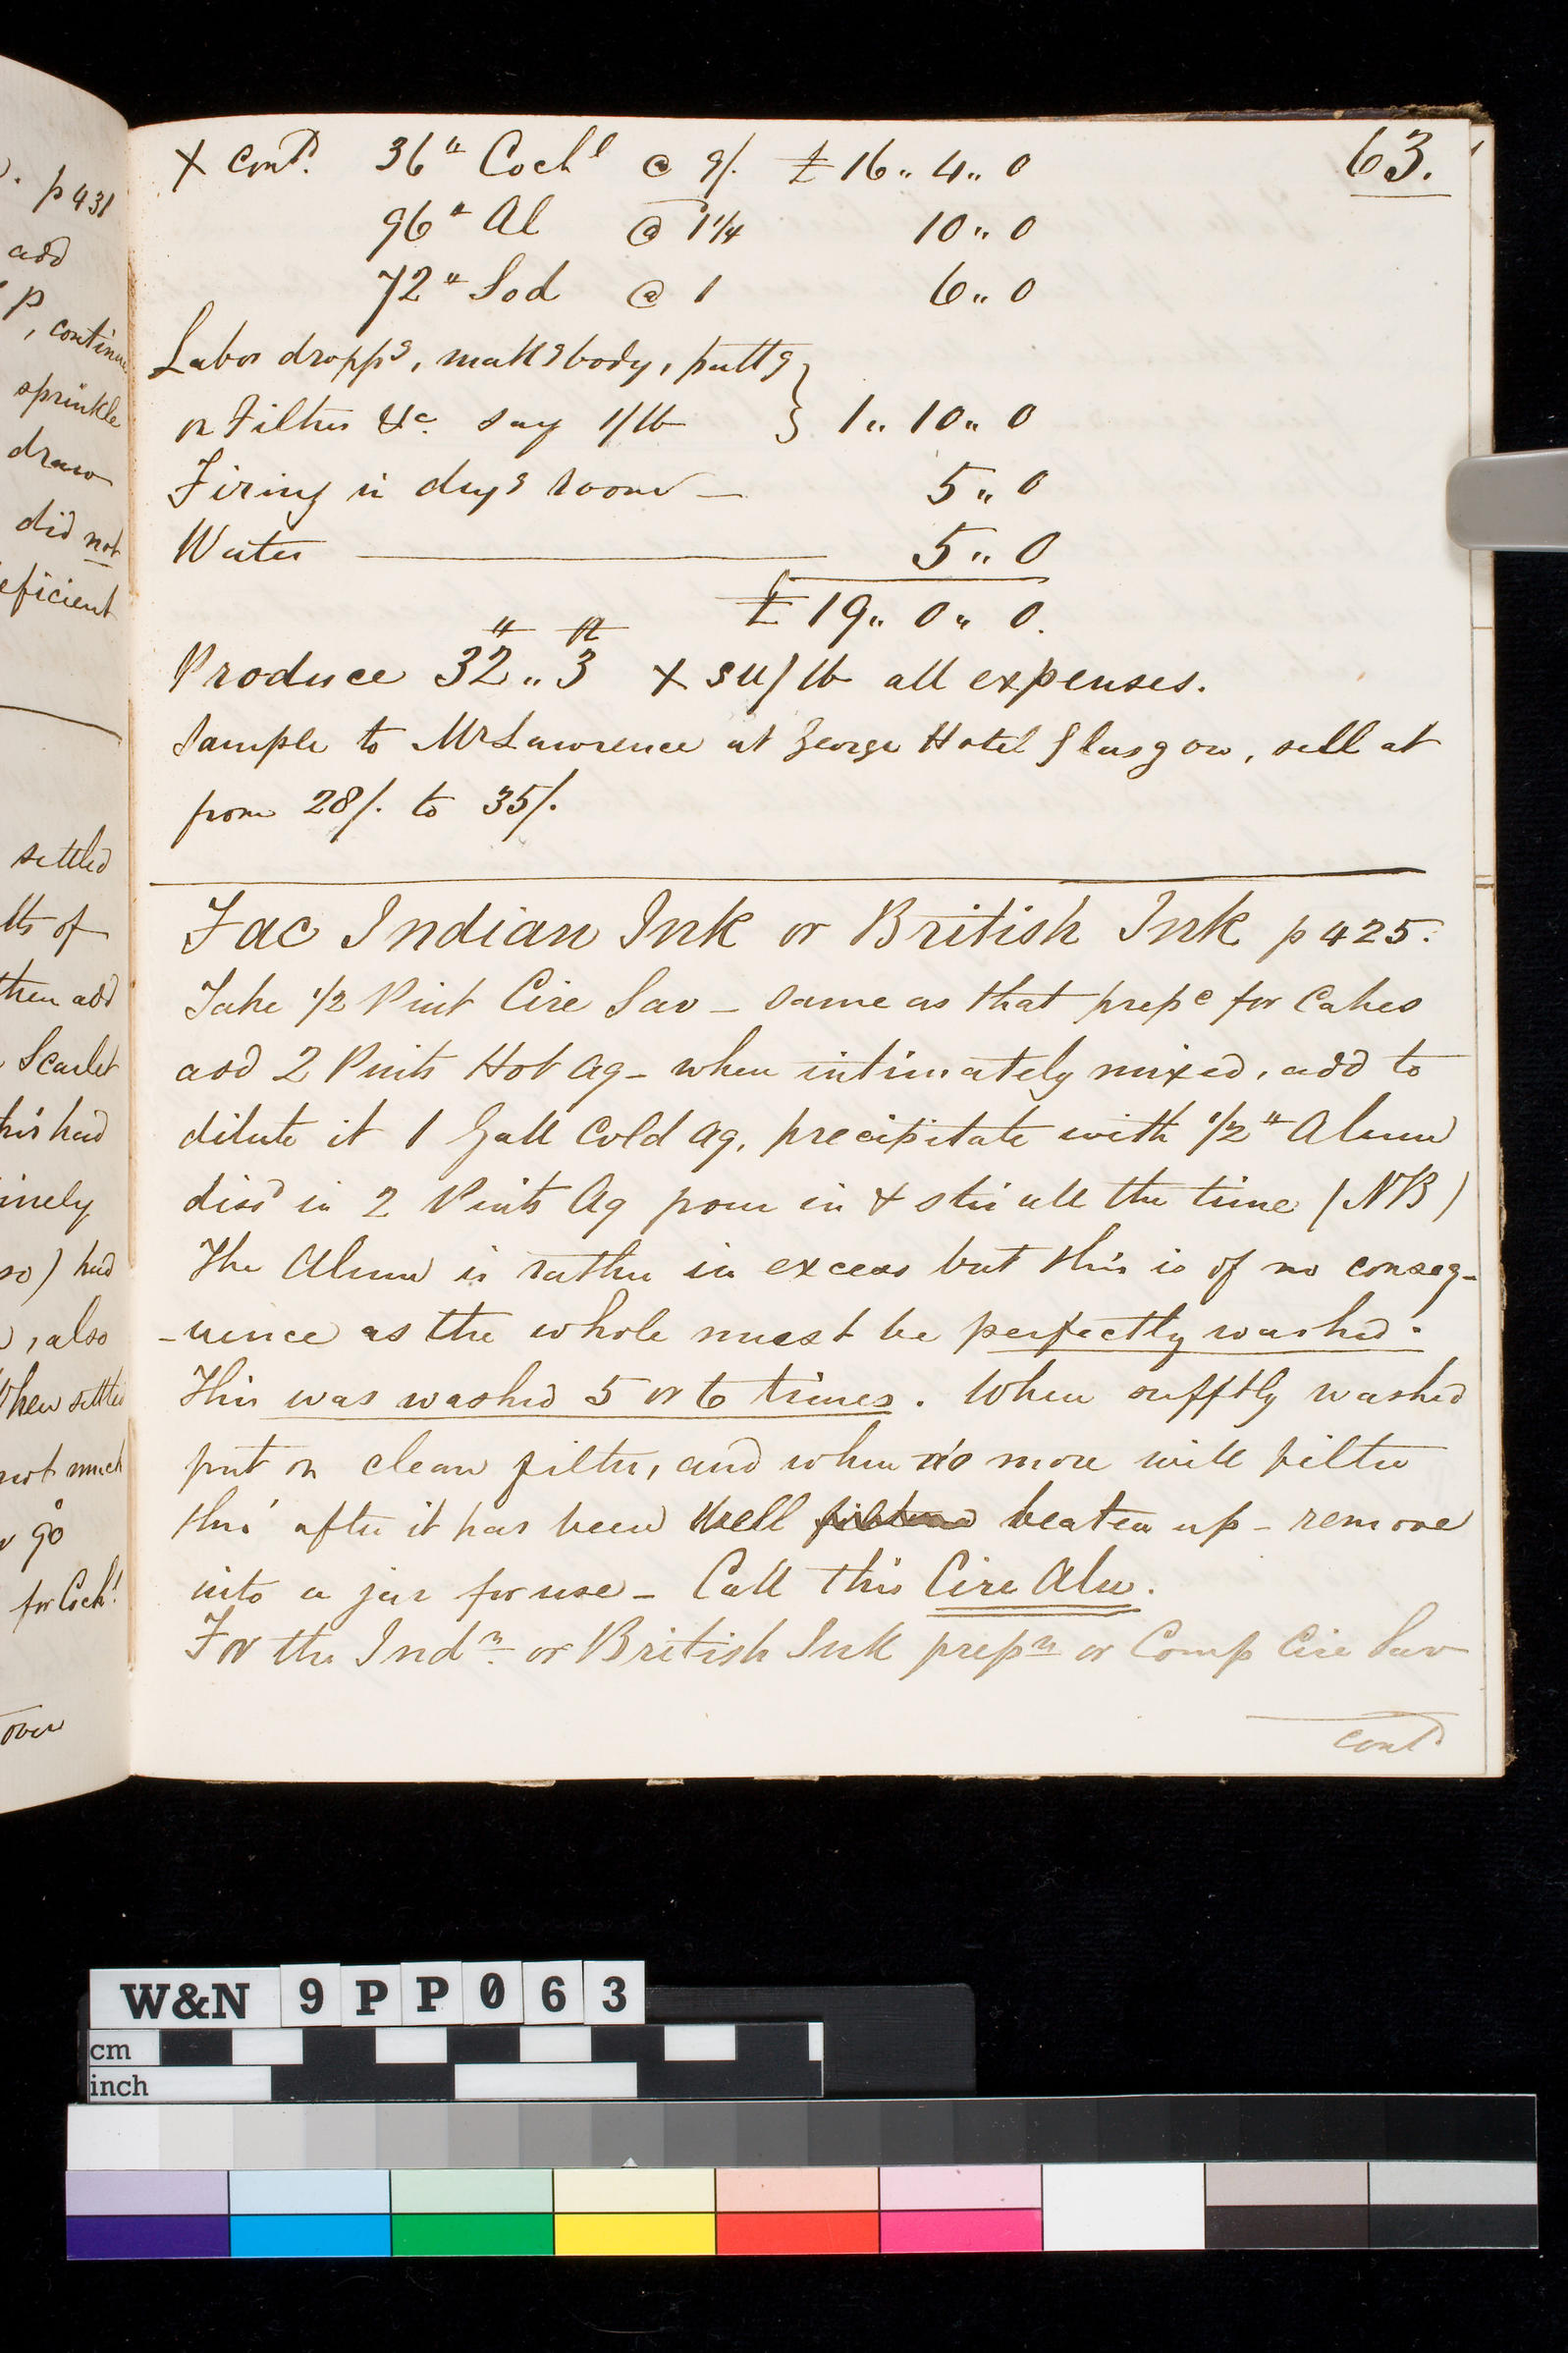 p 431
add
P
, continue
sprinkle
draw
did not
eficient
settled
lts of
then add
Scarlet
this had
inely
so) had
, also
When settled
not much
go
for Cochl
over
63.
X Contd. 36" Cochl @ 9/. £16.. 4.. 0
96" Al @ 1¼ 10.. 0
72" Sod @ 1 6.. 0
Labor droppg, makg body, puttg
on Filter &c. say 1/lb } 1.. 10.. 0
Firing in dryg room — 5.. 0
Water — 5.. 0
£ 19.. 0.. 0.
Produce 32.. 3 X su/lb all expenses.
Sample to Mr Lawrence at George Hotel Glasgow, sell at
from 28/. to 35/.
Fac Indian Ink or British Ink p 425.
Take ½ Pint Cire Sav – same as that prepe for Cakes
add 2 Pints Hot Aq – when intimately mixed, add to
dilute it 1 Gall Cold Aq, precipitate with ½" Alum
dissd in 2 Pints Aq pour in & stir all the time (NB)
The Alum is rather in excess but this is of no conseq-
-uence as the whole must be perfectly washed.
This was washed 5 or 6 times. When sufftly washed
put on clean filter, and when no more will filter
thro' after it has been well filtered beaten up – remove
into a jar for use – Call this Cire Alu.
For the Indn. or British Ink prepn or Comp Cire Sav
contd
W&N 9PP063
cm
inch